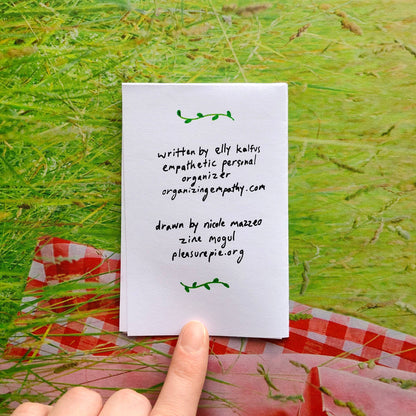 written by elly kalfus
empathetic personal
organizer
organizingempathy.com
drawn by nicole mazzeo
zine mogul
pleasurepie.org